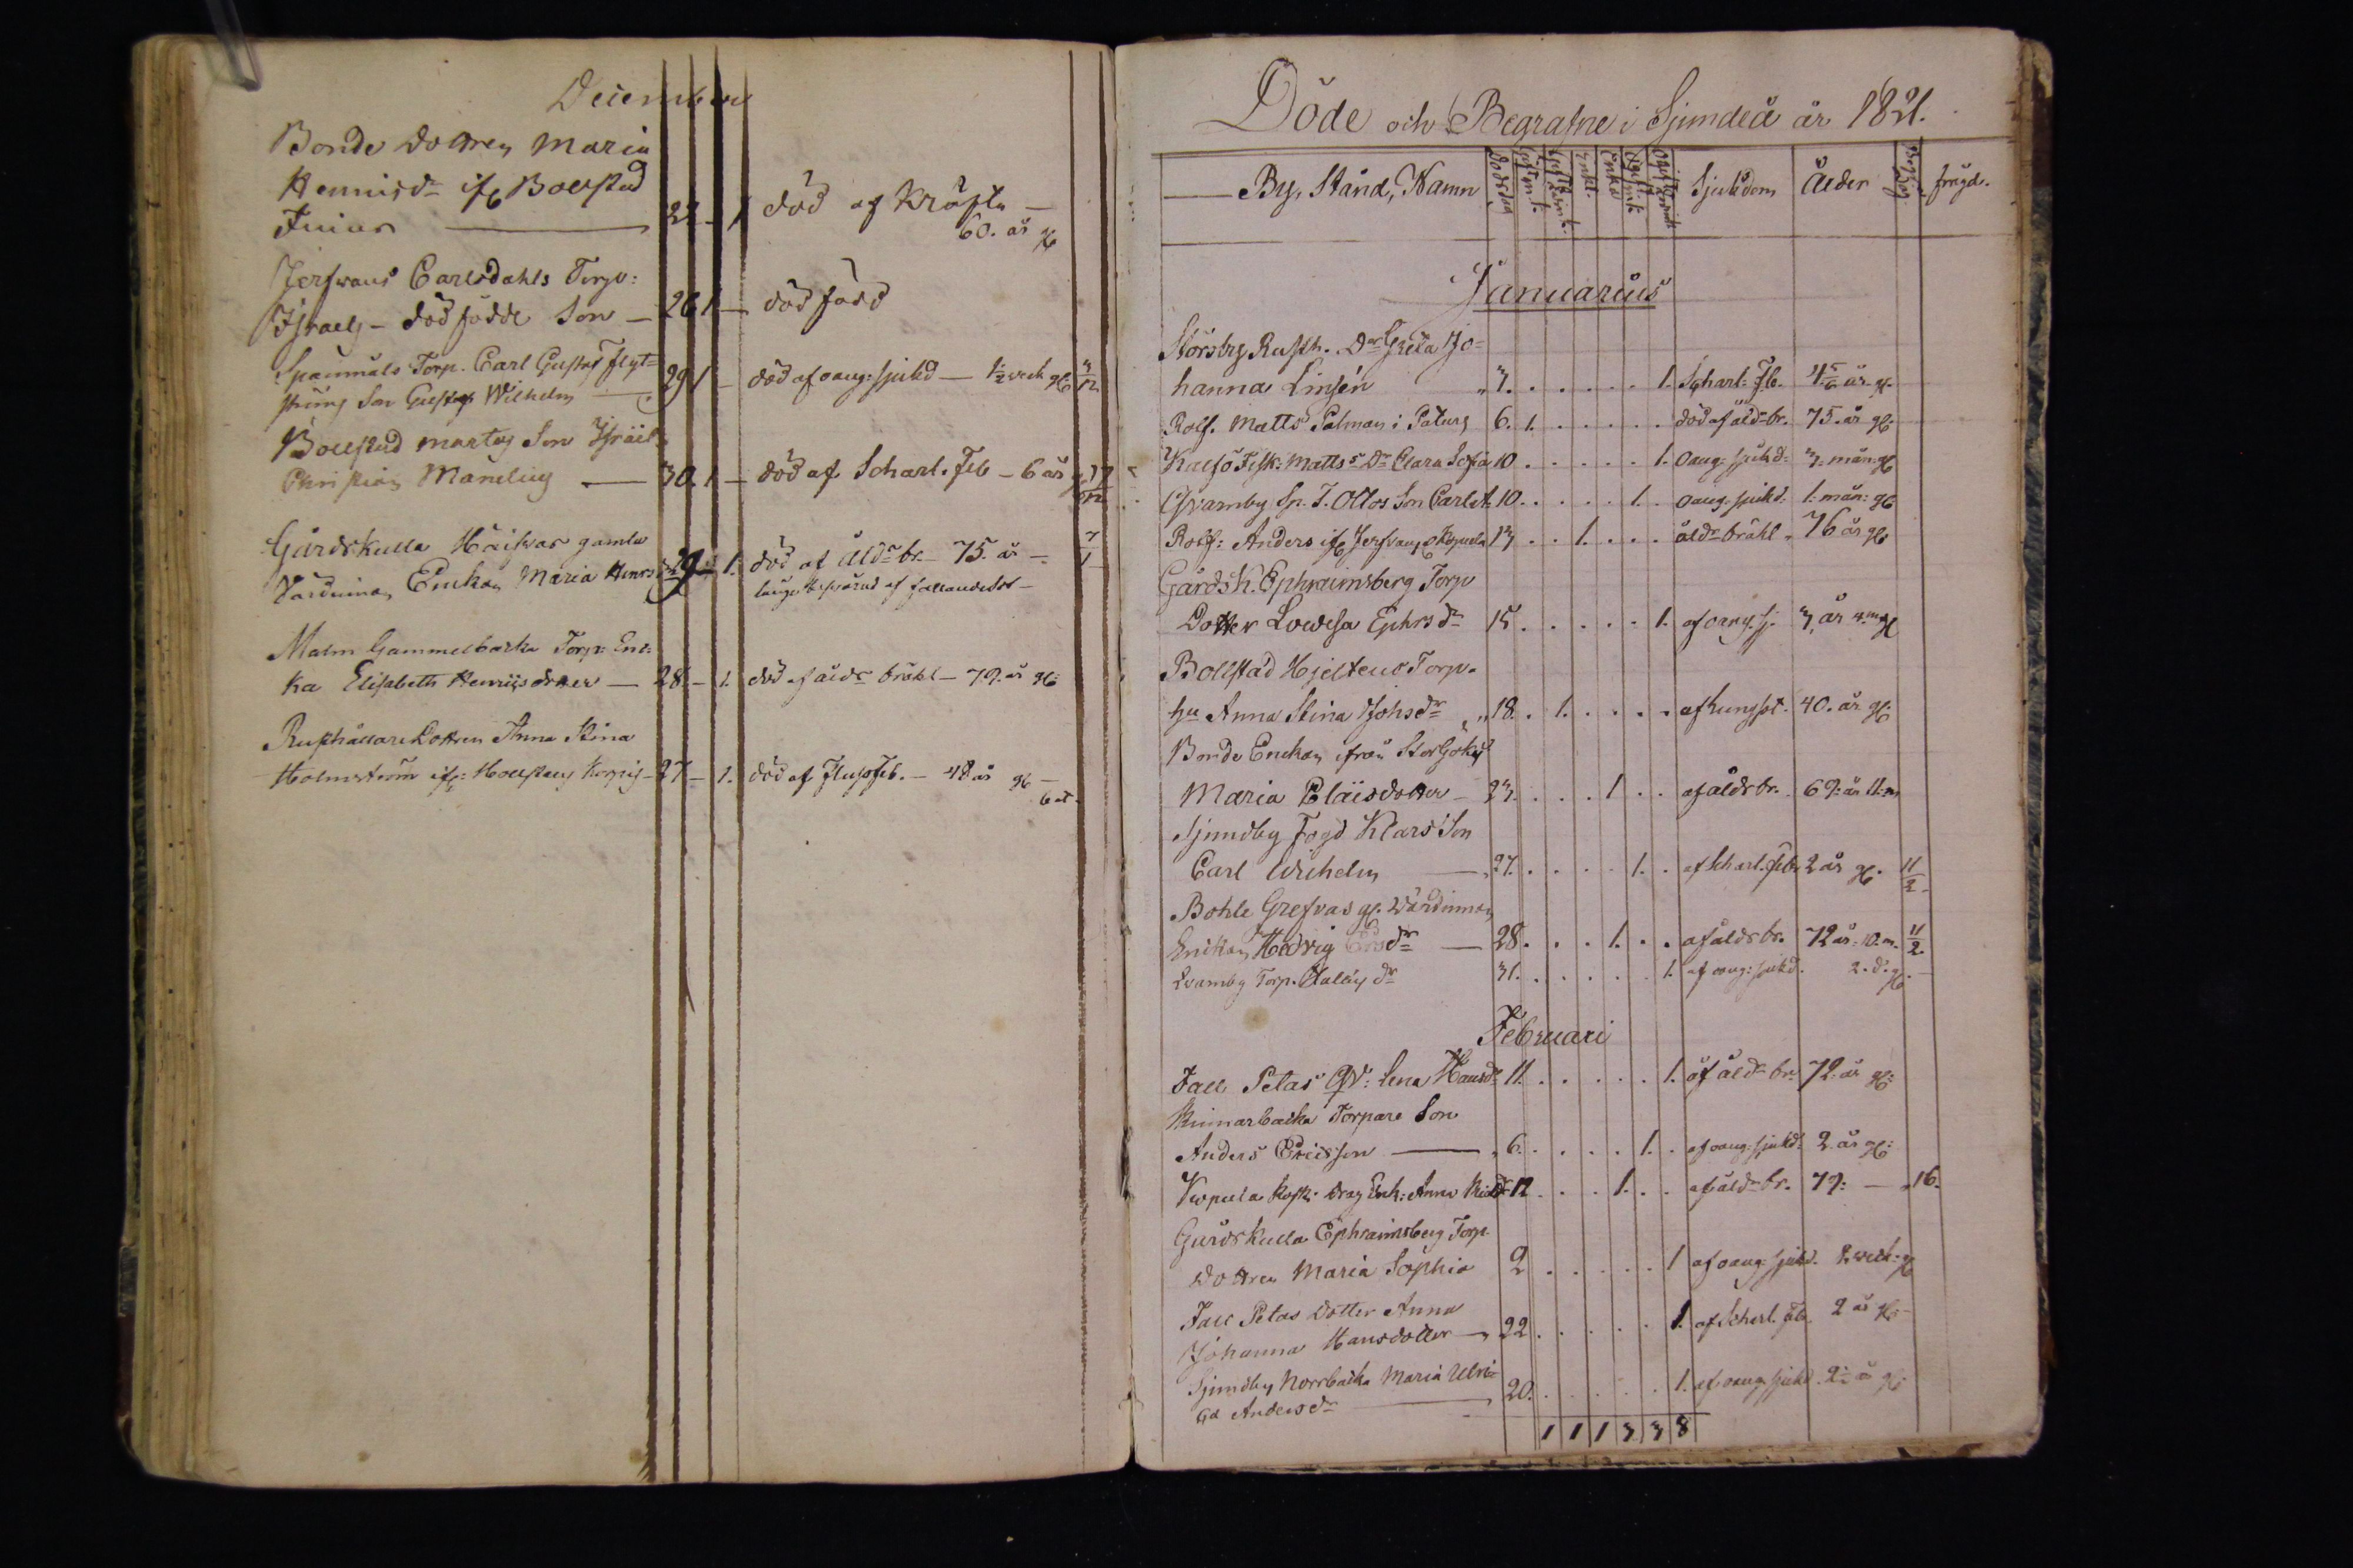 December
Bonde Dottren Maria
Henrisdr if Bollstad
Junior — 22 — 1 död af Kräfta —
60. år gl
Jerfvans Carlsdahls Torp:
Israels — dödfödde Son — 26 1 — död född
Spannnäls Torp. Carl Gustaf Flyt=
ströms Son Gustaf Wilhelm — 29 1 — död af oang: sjukd — 1/2 veck gl
Bollstad Martens Son Israel
Christian Mandelin — 30. 1 — död af Scharl. Feb — 6 år
Gårdskulla Häisvar gamla
Värdinnan Enkan Maria Henrs 29 — 1. död af åldr br. — 75. år —
länge besvärad af fallandesot —
Malm Gammelbacka Torp: En=
ka Elisabeth Henricsdotter — 28 — 1. död af åldr bråhl — 79. år gl:
Rusthållare Dottren Anna Stina
Holmström if: Hollstens Korpis — 27 — 1. död af Flussfeb. — 48 år gl —
Döde och Begrafne i Sjundeå år 1821.
By, Stånd, Namn Dödsdag Enkl. Enkor Sjukdom Ålder Begr. dag frägd.
Januarius
Störsby Rusth. Dr Greta Jo=
hanna Linsén 3. 1. Scharl: Feb. 4 5/6 år. gl.
Rolf. Matts Palman i Paturs 6. 1. död af åldr br. 75. år gl.
Kalfö Fisk: Mattss Dr Clara Sofia 10 1. oang: sjukd: 3. mån: gl
Qvarnby Sp. J. Ottos Son Carl A. 10. 1. oang. sjukd: 1. mån: gl
Rolf: Anders if Jerfvans Kopula 13 1. åldr bråhl 76 år gl
Gårdsk. Ephraimsberg Torp
Dotter Lovisa Ephrsdr 15. 1. af oang. sj. 3 år 4. m gl
Bollstad Hjeltens Torp.
hu Anna Stina Johsdr 18. 1. af Lungsot. 40. år gl.
Bonde Enkan ifrån StorGöks
Maria Eläisdotter — 23. 1 af åldr br. 69: år 11: m
Sjundby Fogd Klars Son
Carl Wilhelm — 27. 1. af Scharl. Feb. 2 år gl. 11/2
Bohle Grefvas gl. Wärdinnan
Enkan Hedvig Ersdr — 28. 1. af åldr br. 72 år: 10. m. 11/2
Qvarnby Torp. Stalens dr 31. 1. af oang: sjukd. 2. d. gl. —
Februari
Fall Petas Qv: Lena Hansdr 11. 1. af åldr br: 72. år gl:
Kinnarbacka Torpare Son
Anders Ericsson — 6. 1. af oang: sjukd: 2. år gl:
Kopula Rusth. Drag Enk: Anna 12 1. af åldr br. 79: — 16.
Gårdskulla Ephraimsberg Torp
Dottren Maria Sophia 9 1 af oang: sjukd. 2 veck: gl
Fall Petas Dotter Anna
Johanna Hansdotter — 22. 1. af Scharl. feb. 2 år gl: —
Sjundby Norrbacka Maria Ulri=
ca Andersdr — 20. 1. af oang sjukd. 2 1/2 år gl
1 1 1 3 3 8